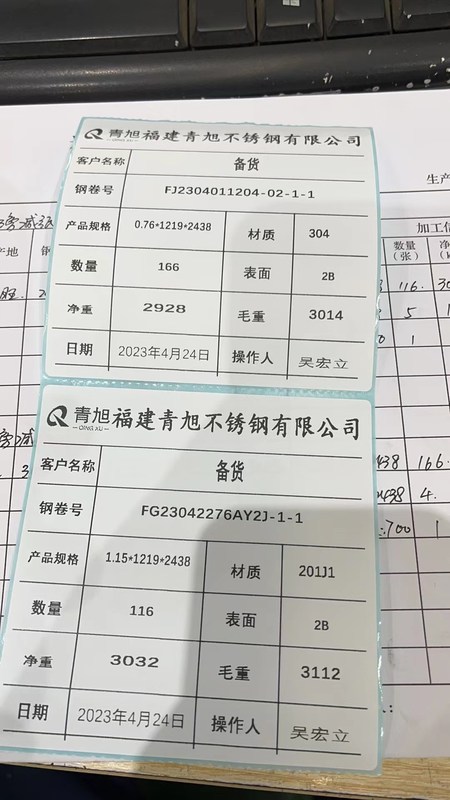 青旭 福建青旭不锈钢有限公司
QING XU
客户名称 备货
钢卷号 FJ2304011204-02-1-1
产品规格 0.76*1219*2438 材质 304
数量 166 表面 2B
净重 2928 毛重 3014
日期 2023年4月24日 操作人 吴宏立
青旭 福建青旭不锈钢有限公司
QING XU
客户名称 备货
钢卷号 FG23042276AY2J-1-1
产品规格 1.15*1219*2438 材质 201J1
数量 116 表面 2B
净重 3032 毛重 3112
日期 2023年4月24日 操作人 吴宏立
生产
加工信
数量
（张）
116.
5
1
438 166.
438 4.
700 1
地